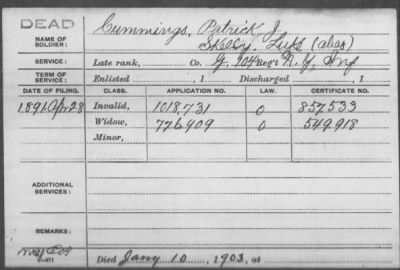 DEAD
NAME OF SOLDIER: Cummings, Patrick J.
Skelly, Luke (alias)
SERVICE: Late rank, Co. G, 104 Reg't N.Y. Inf
TERM OF SERVICE: Enlisted , 1 Discharged , 1
DATE OF FILING. CLASS. APPLICATION NO. LAW. CERTIFICATE NO.
1891 Apr 28 Invalid, 1018,731 O 857533
Widow, 776909 O 549.918
Minor,
ADDITIONAL SERVICES:
REMARKS:
Died Jany 10, 1903, at